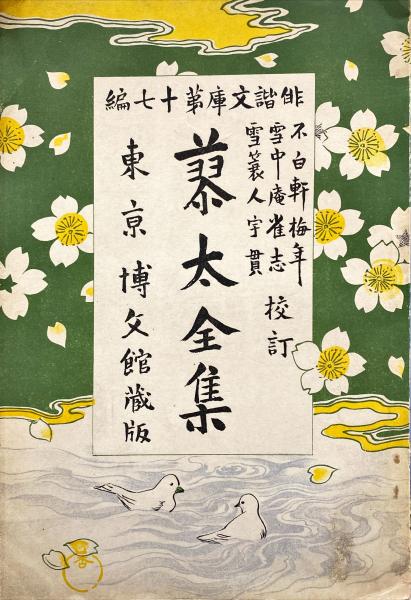 俳諧文庫第十七編
不白軒梅年
雪中庵雀志 校訂
雪蓑人宇貫
蓼太全集
東京博文館藏版